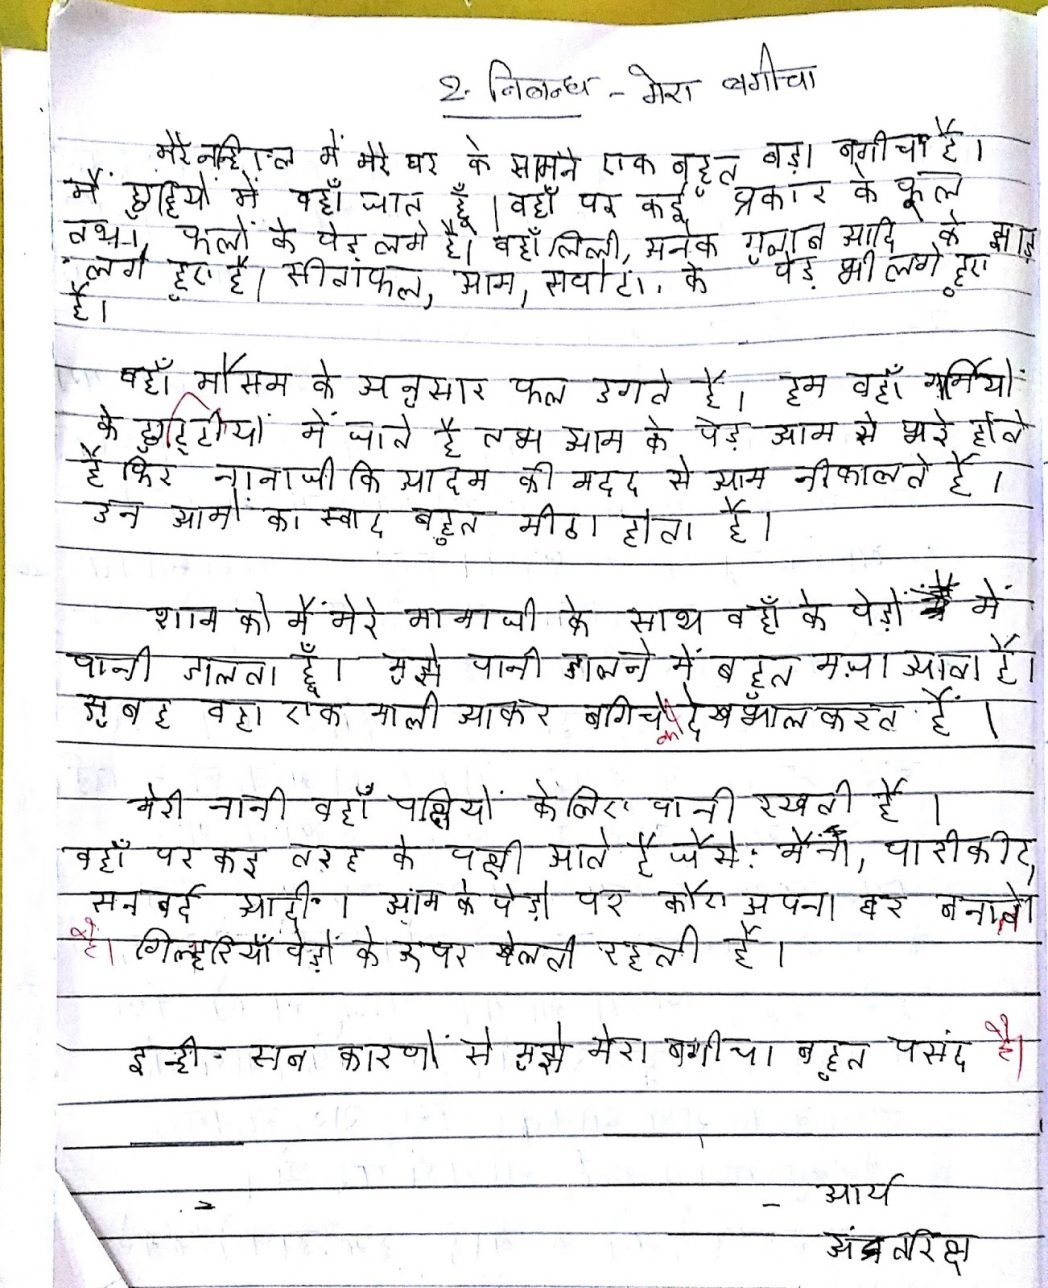 2. निबन्ध - मेरा बगीचा
मेरे ननिहाल में मेरे घर के सामने एक बहुत बड़ा बगीचा है।
मैं छुट्टियों में वहाँ जात हूँ। वहाँ पर कई प्रकार के फूल
तथा, फलों के पेड़ लगे है। वहाँ लिली, अनेक गुलाब आदि के झाड़
लगे हुए है। सीताफल, आम, सपोटा. के पेड़ भी लगे हुए
है।
वहाँ मौसम के अनुसार फल उगते हैं। हम वहाँ गर्मियों
के छुट्टीयों में जाते है तब आम के पेड़ आम से भरे होते
है फिर नानाजी कि आदम की मदद से आम नीकालते हैं।
उन आमों का स्वाद बहुत मीठा होता है।
शाम को मैं मेरे मामाजी के साथ वहाँ के पेड़ों में
पानी डालता हूँ। मुझे पानी डालने में बहुत मज़ा आता है।
सुबह वहा एक माली आकर बगिचे की देखभाल करत हैं।
मेरी नानी वहाँ पक्षियों के लिए पानी रखती हैं।
वहाँ पर कइ तरह के पक्षी आते है जैसे: मैना, पारीकीट,
सनबर्द आदी। आम के पेड़ो पर कौए अपना घर बनाते
है। गिल्हरियाँ पेड़ों के ऊपर खेलती रहती हैं।
इन्ही सब कारणों से मुझे मेरा बगीचा बहुत पसंद है।
- आर्य
अंतरिक्ष